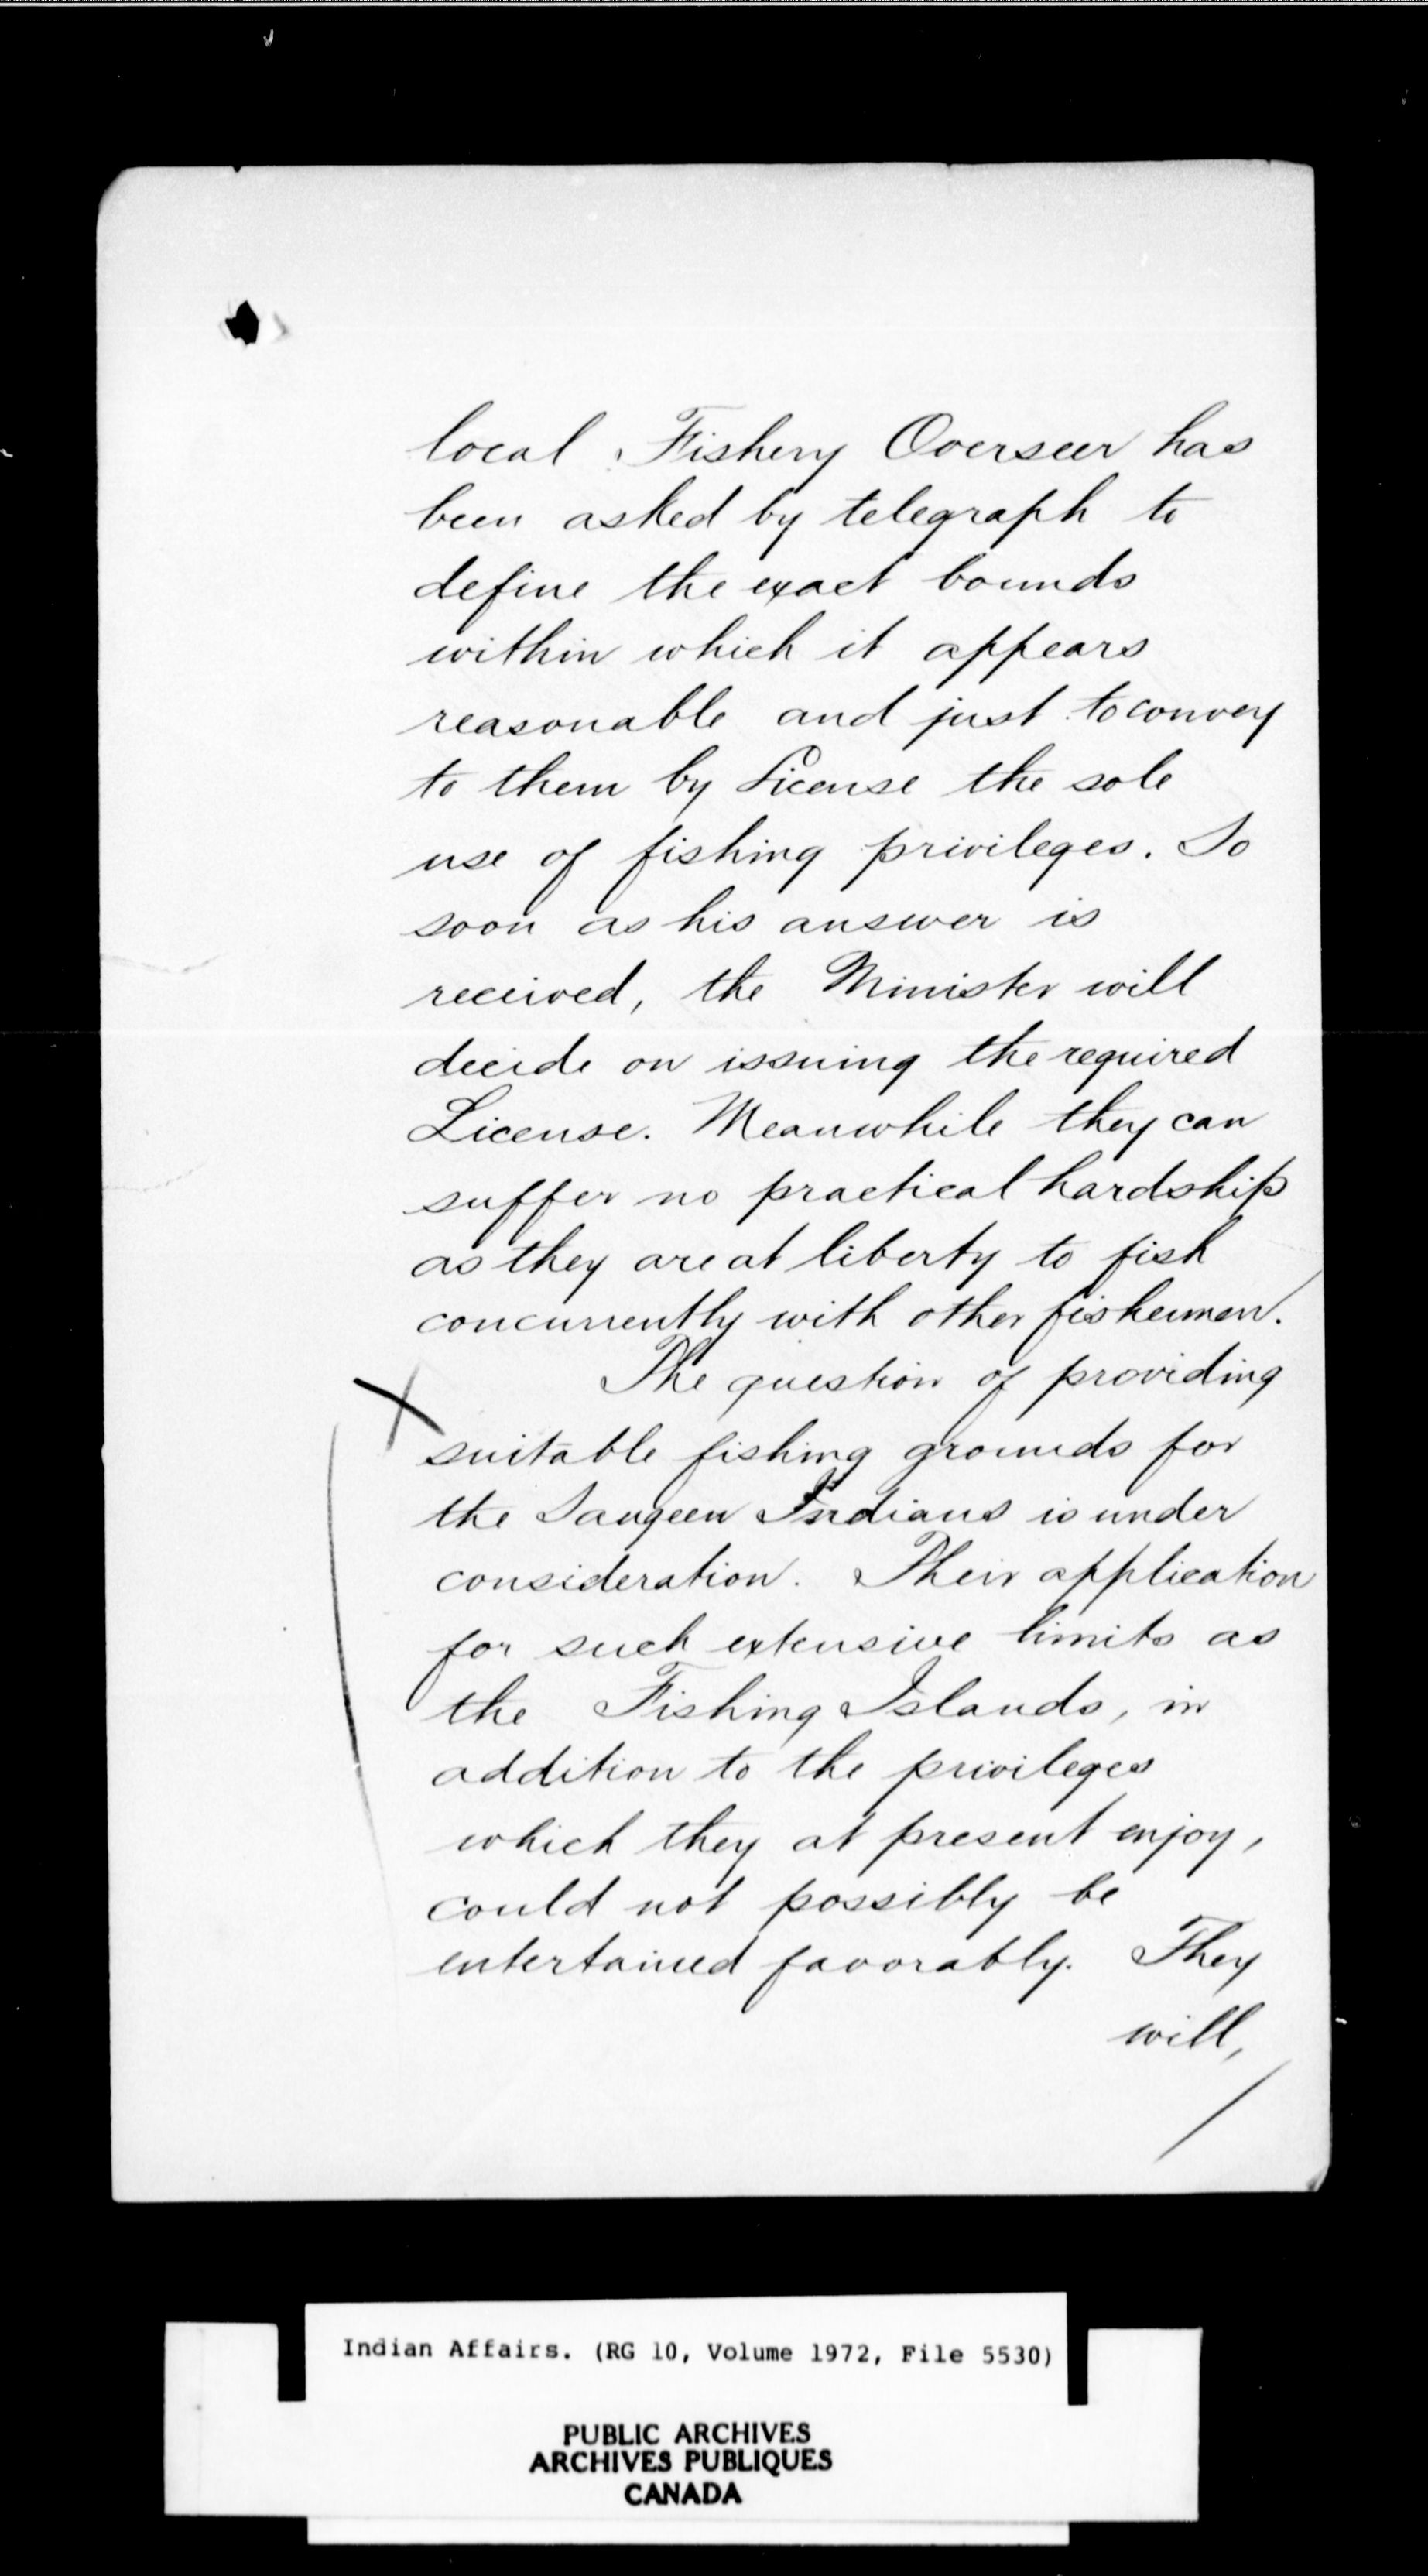 local Fishery Overseer has
been asked by telegraph to
define the exact bounds
within which it appears
reasonable and just to convey
to them by License the sole
use of fishing privileges. So
soon as his answer is
received, the Minister will
decide on issuing the required
License. Meanwhile they can
suffer no practical hardship
as they are at liberty to fish
concurrently with other fishermen.
The question of providing
suitable fishing grounds for
the Saugeen Indians is under
consideration. Their application
for such extensive limits as
the Fishing Islands, in
addition to the privileges
which they at present enjoy,
could not possibly be
entertained favorably. They
will,
Indian Affairs. (RG 10, Volume 1972, File 5530)
PUBLIC ARCHIVES
ARCHIVES PUBLIQUES
CANADA